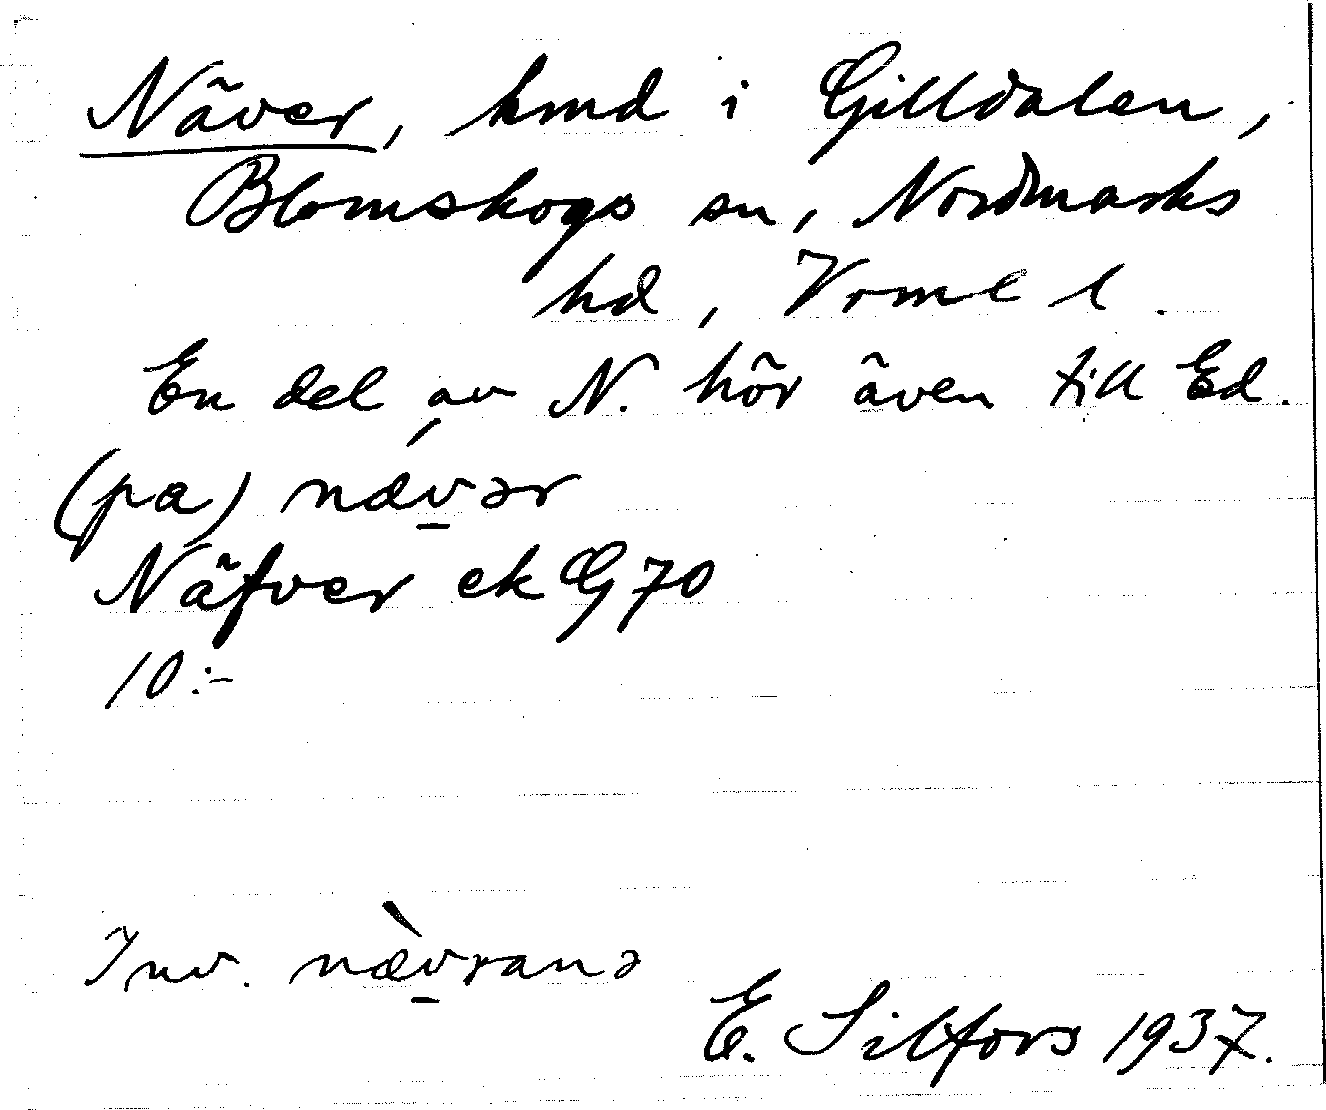 Näver, hmd i Gilldalen,
Blomskogs sn, Nordmarks
hd, Vrml l.
En del av N. hör även till Ed.
(pa) næ̀v̲ər
Näfver ek G 70
10:-
Inv. næ̀v̲rana
E. Silfors 1937.